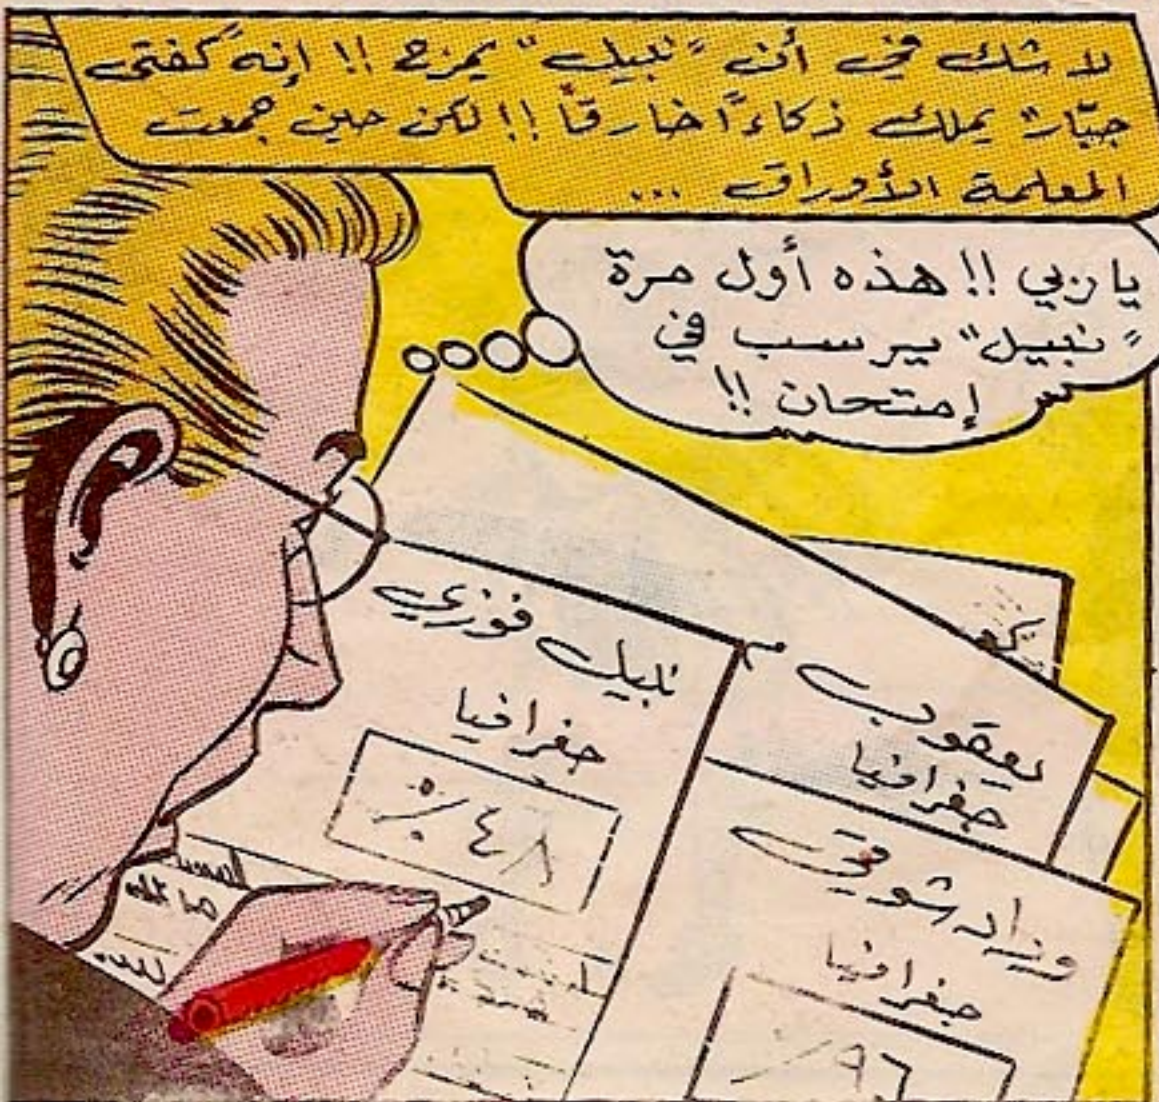 لا شك في أن "نبيل" يمزح !! إنه "كفتى
جبّار" يملك ذكاءًا خارقًا !! لكن حين جمعت
المعلمة الأوراق ...
يا ربي !! هذه أول مرة
"نبيل" يرسب في
إمتحان !!
نبيل فوزي
جغرافيا
٤٨ ٪
يعقوب م
جغرافيا
وداد شوقي
جغرافيا
٩٦ ٪